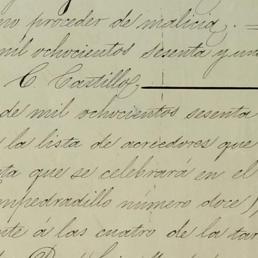 no proceder de malicia.
mil ochocientos sesenta y un
C. Castillo
de mil ochocientos sesenta
la lista de acreedores que
ta que se celebrará en el
mpedradillo número doce),
nte á las cuatro de la tar